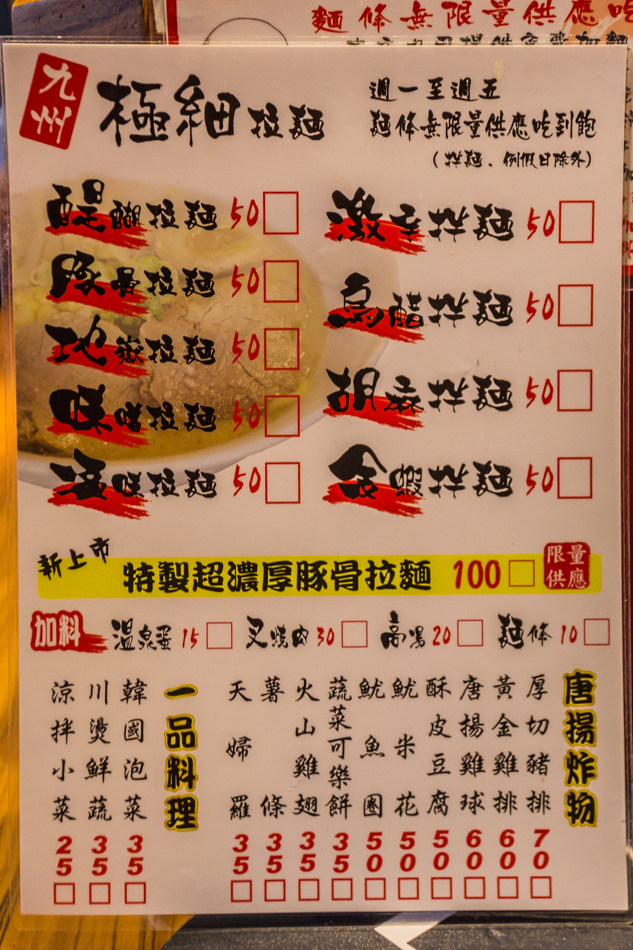 麵條無限量供應吃
九州
極細拉麵
週一至週五
麵條無限量供應吃到飽
(拌麵、例假日除外)
醍醐拉麵 50
豚骨拉麵 50
地嶽拉麵 50
味噌拉麵 50
湯咲拉麵 50
激辛拌麵 50
烏醋拌麵 50
胡麻拌麵 50
金蝦拌麵 50
新上市
特製超濃厚豚骨拉麵 100
限量供應
加料
溫泉蛋 15
叉燒肉 30
高湯 20
麵條 10
唐揚炸物
厚切豬排 70
黃金雞排 60
唐揚雞球 60
酥皮豆腐 50
魷米花 50
魷魚圈 50
蔬菜可樂餅 35
火山雞翅 35
薯條 35
天婦羅 35
一品料理
韓國泡菜 35
川燙鮮蔬 35
涼拌小菜 25